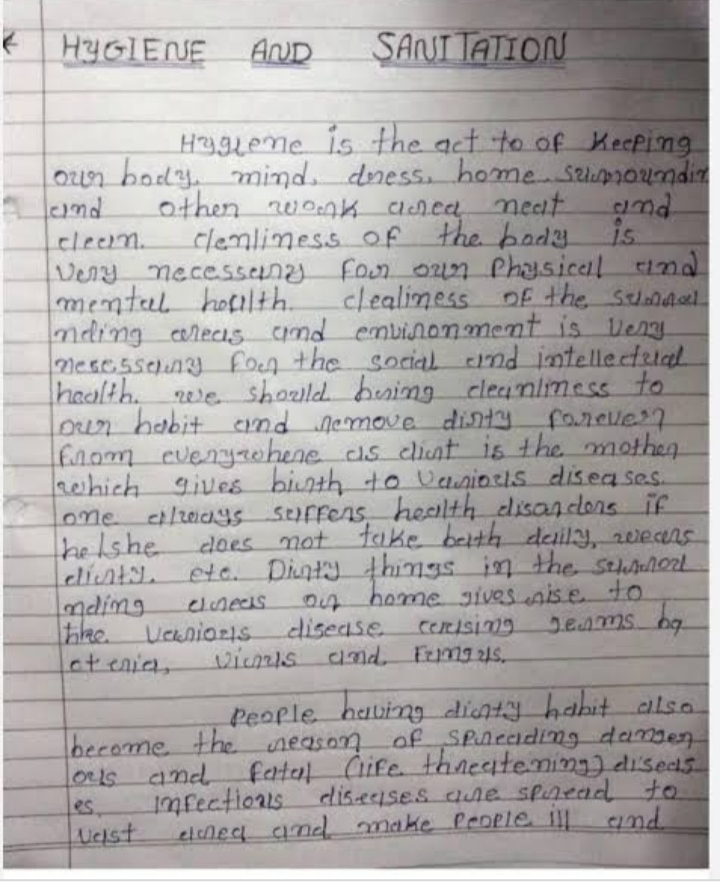 HYGIENE AND SANITATION
Hygiene is the act to of keeping
our body, mind, dress, home surroundin
and other work area neat and
clean. clenliness of the body is
very necessary for our physical and
mental health. clealiness of the surrou
nding areas and environment is very
nesessary for the social and intellectual
health. we should bring cleanliness to
our habit and remove dirty forever
from everywhere as dirt is the mother
which gives birth to various diseases.
one always suffers health disorders if
he/she does not take bath daily, wears
dirty. etc. Dirty things in the surrou
nding areas or home gives rise to
the various disease causing germs ba
cteria, virus and Fungus.
People having dirty habit also
become the reason of spreading danger
ous and fatal (life threatening) diseas
es. infectious diseases are spread to
vast area and make people ill and